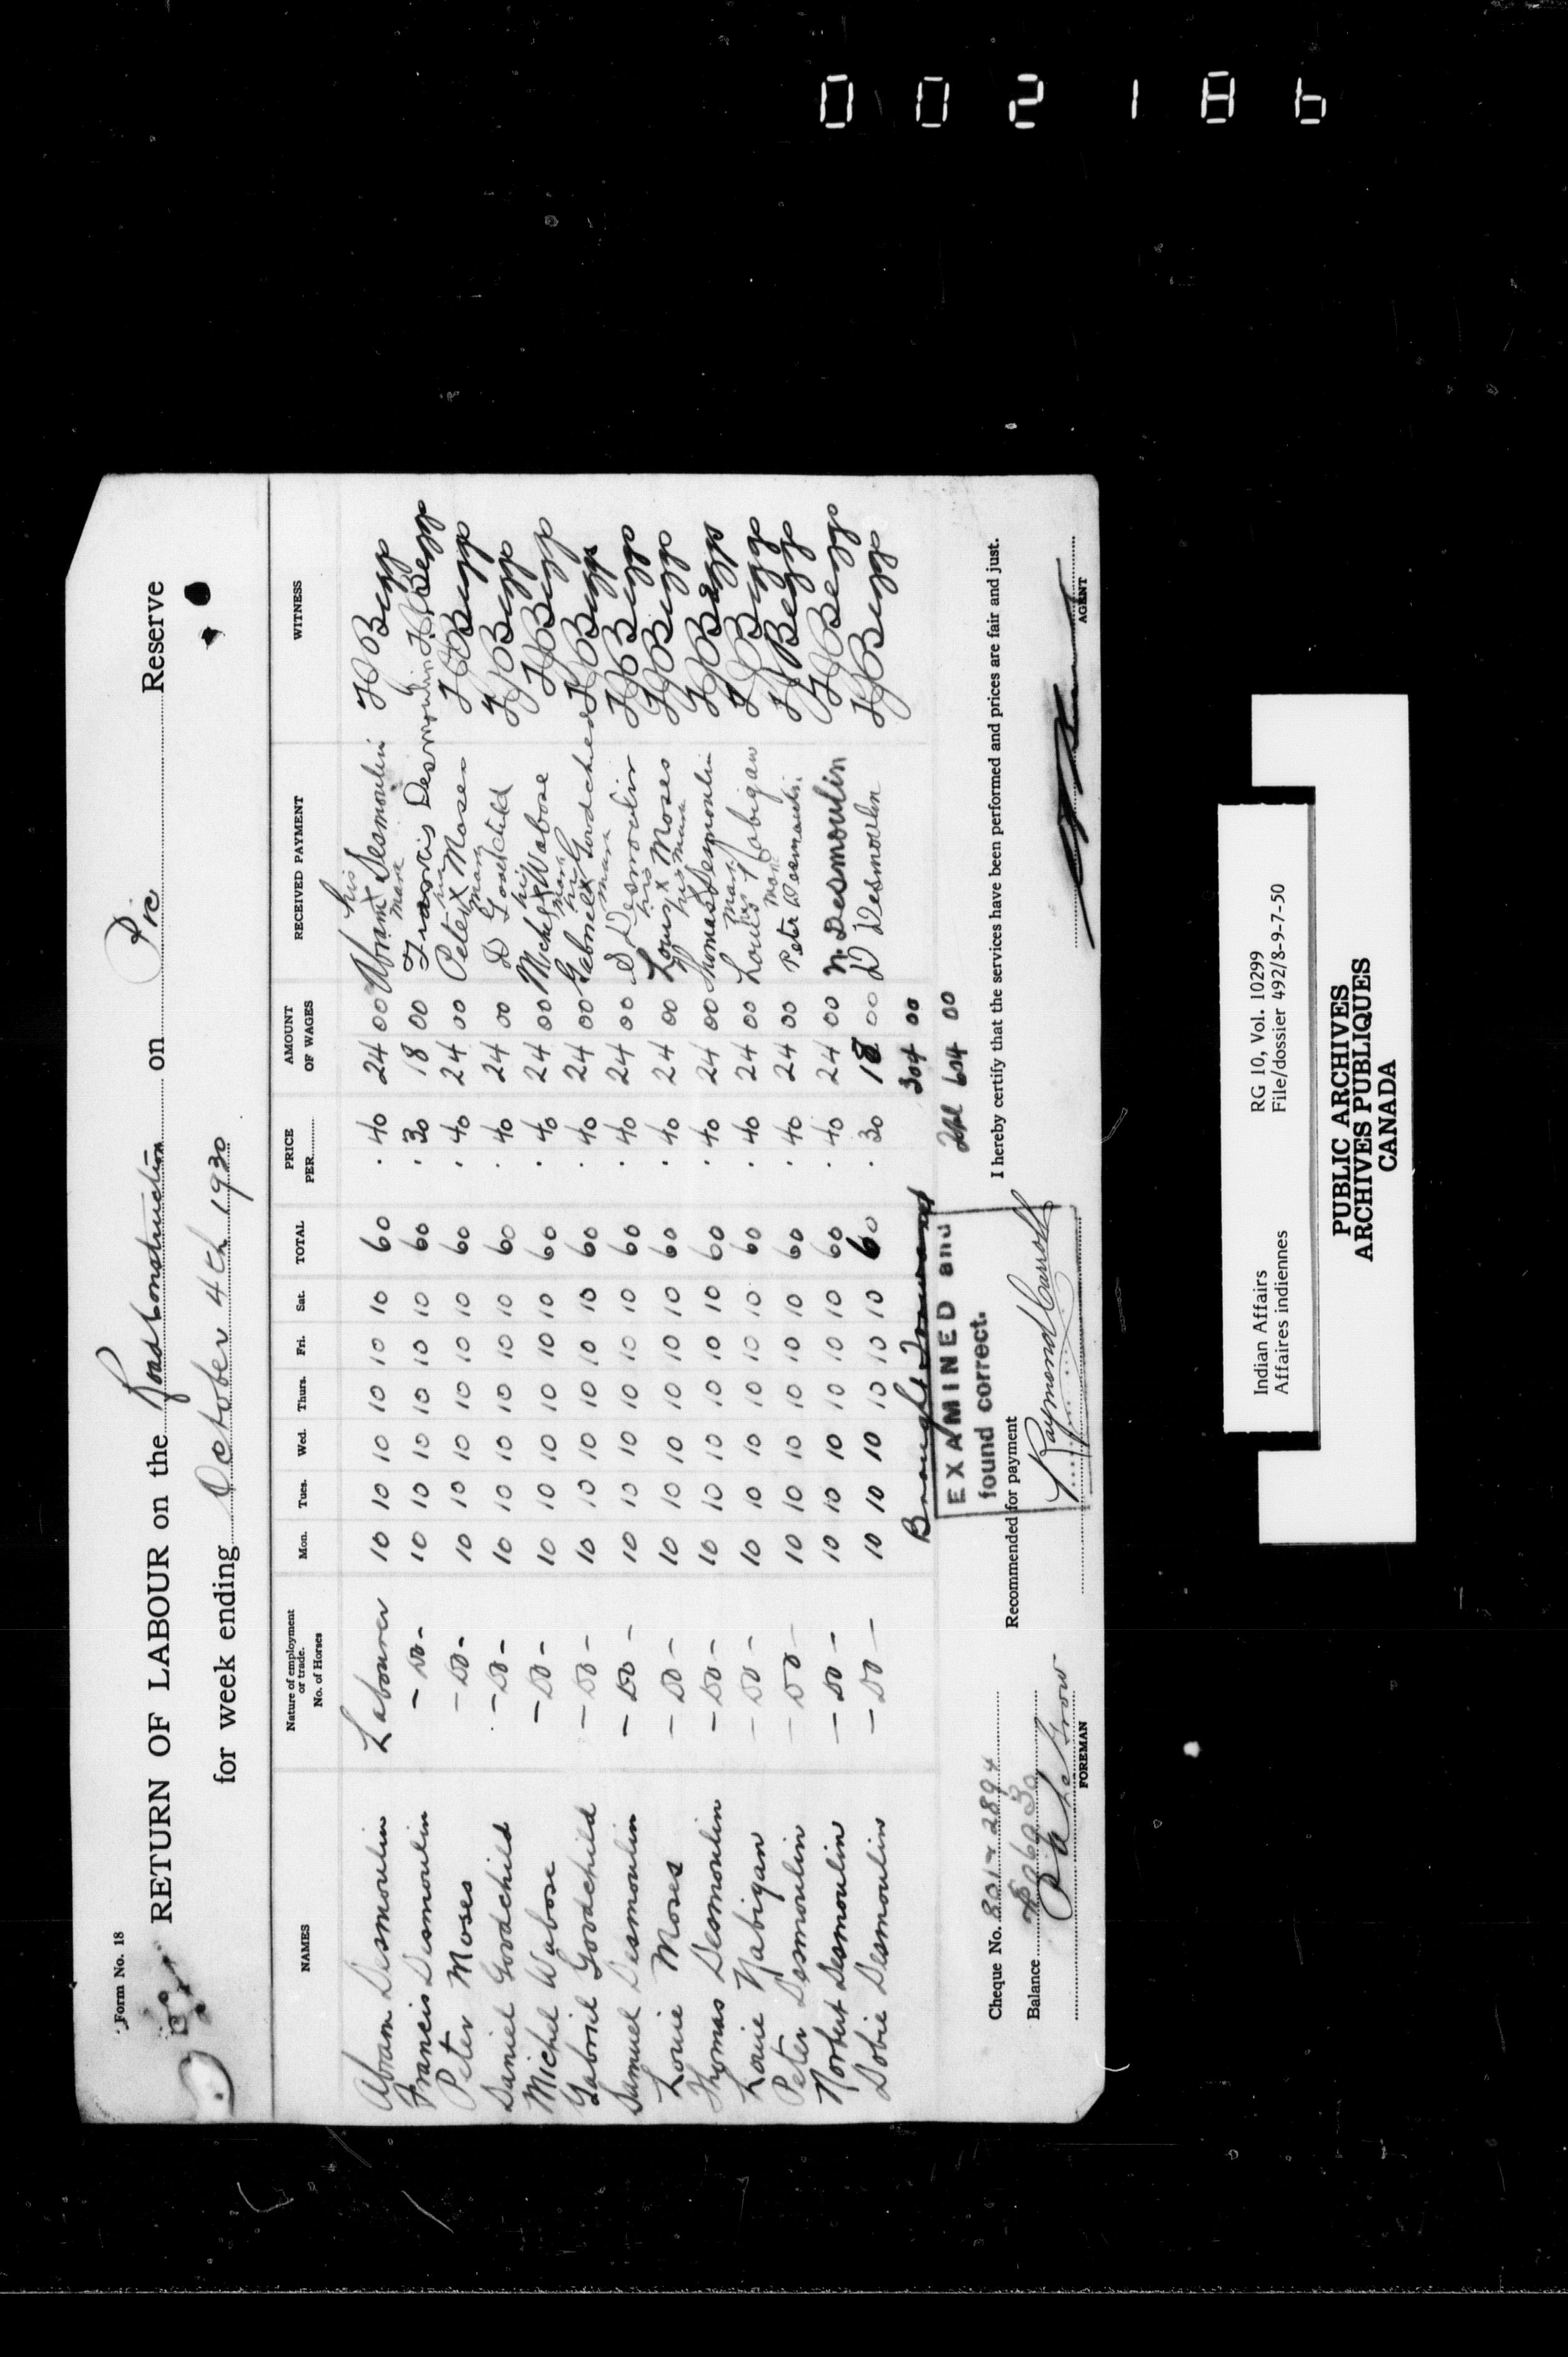 002186
Form No. 18
RETURN OF LABOUR on the Road Construction on Pic Reserve
for week ending October 4th 1930
NAMES Nature of employment or trade. No. of Horses Mon. Tues. Wed. Thurs. Fri. Sat. TOTAL PRICE PER AMOUNT OF WAGES RECEIVED PAYMENT WITNESS
Abram Desmoulin Labourer 10 10 10 10 10 10 60 .40 24 00 Abram his x mark Desmoulin HJ Begg
Francis Desmoulin - DO - 10 10 10 10 10 10 60 .30 18 00 Francis Desmoulin HJ Begg
Peter Moses - DO - 10 10 10 10 10 10 60 .40 24 00 Peter his x mark Moses HJ Begg
Daniel Goodchild - DO - 10 10 10 10 10 10 60 .40 24 00 D Goodchild HJ Begg
Michel Wabose - DO - 10 10 10 10 10 10 60 .40 24 00 Michel his x mark Wabose HJ Begg
Gabriel Goodchild - DO - 10 10 10 10 10 10 60 .40 24 00 Gabriel his x mark Goodchild HJ Begg
Samuel Desmoulin - DO - 10 10 10 10 10 10 60 .40 24 00 S Desmoulin HJ Begg
Louie Moses - DO - 10 10 10 10 10 10 60 .40 24 00 Louis his x mark Moses HJ Begg
Thomas Desmoulin - DO - 10 10 10 10 10 10 60 .40 24 00 Thomas his mark Desmoulin HJ Begg
Louie Nabigan - DO - 10 10 10 10 10 10 60 .40 24 00 Louis his x mark Nabigan HJ Begg
Peter Desmoulin - DO - 10 10 10 10 10 10 60 .40 24 00 Peter Desmoulin HJ Begg
Norbert Desmoulin - DO - 10 10 10 10 10 10 60 .40 24 00 N. Desmoulin HJ Begg
Dobie Desmoulin - DO - 10 10 10 10 10 10 60 .30 18 00 D Desmoulin HJ Begg
Brought Forward 304 00
604 00
EXAMINED and
found correct.
Cheque No. Recommended for payment I hereby certify that the services have been performed and prices are fair and just.
Balance Raymond Carroll
FOREMAN AGENT
Indian Affairs RG 10, Vol. 10299
Affaires indiennes File/dossier 492/8-9-7-50
PUBLIC ARCHIVES
ARCHIVES PUBLIQUES
CANADA